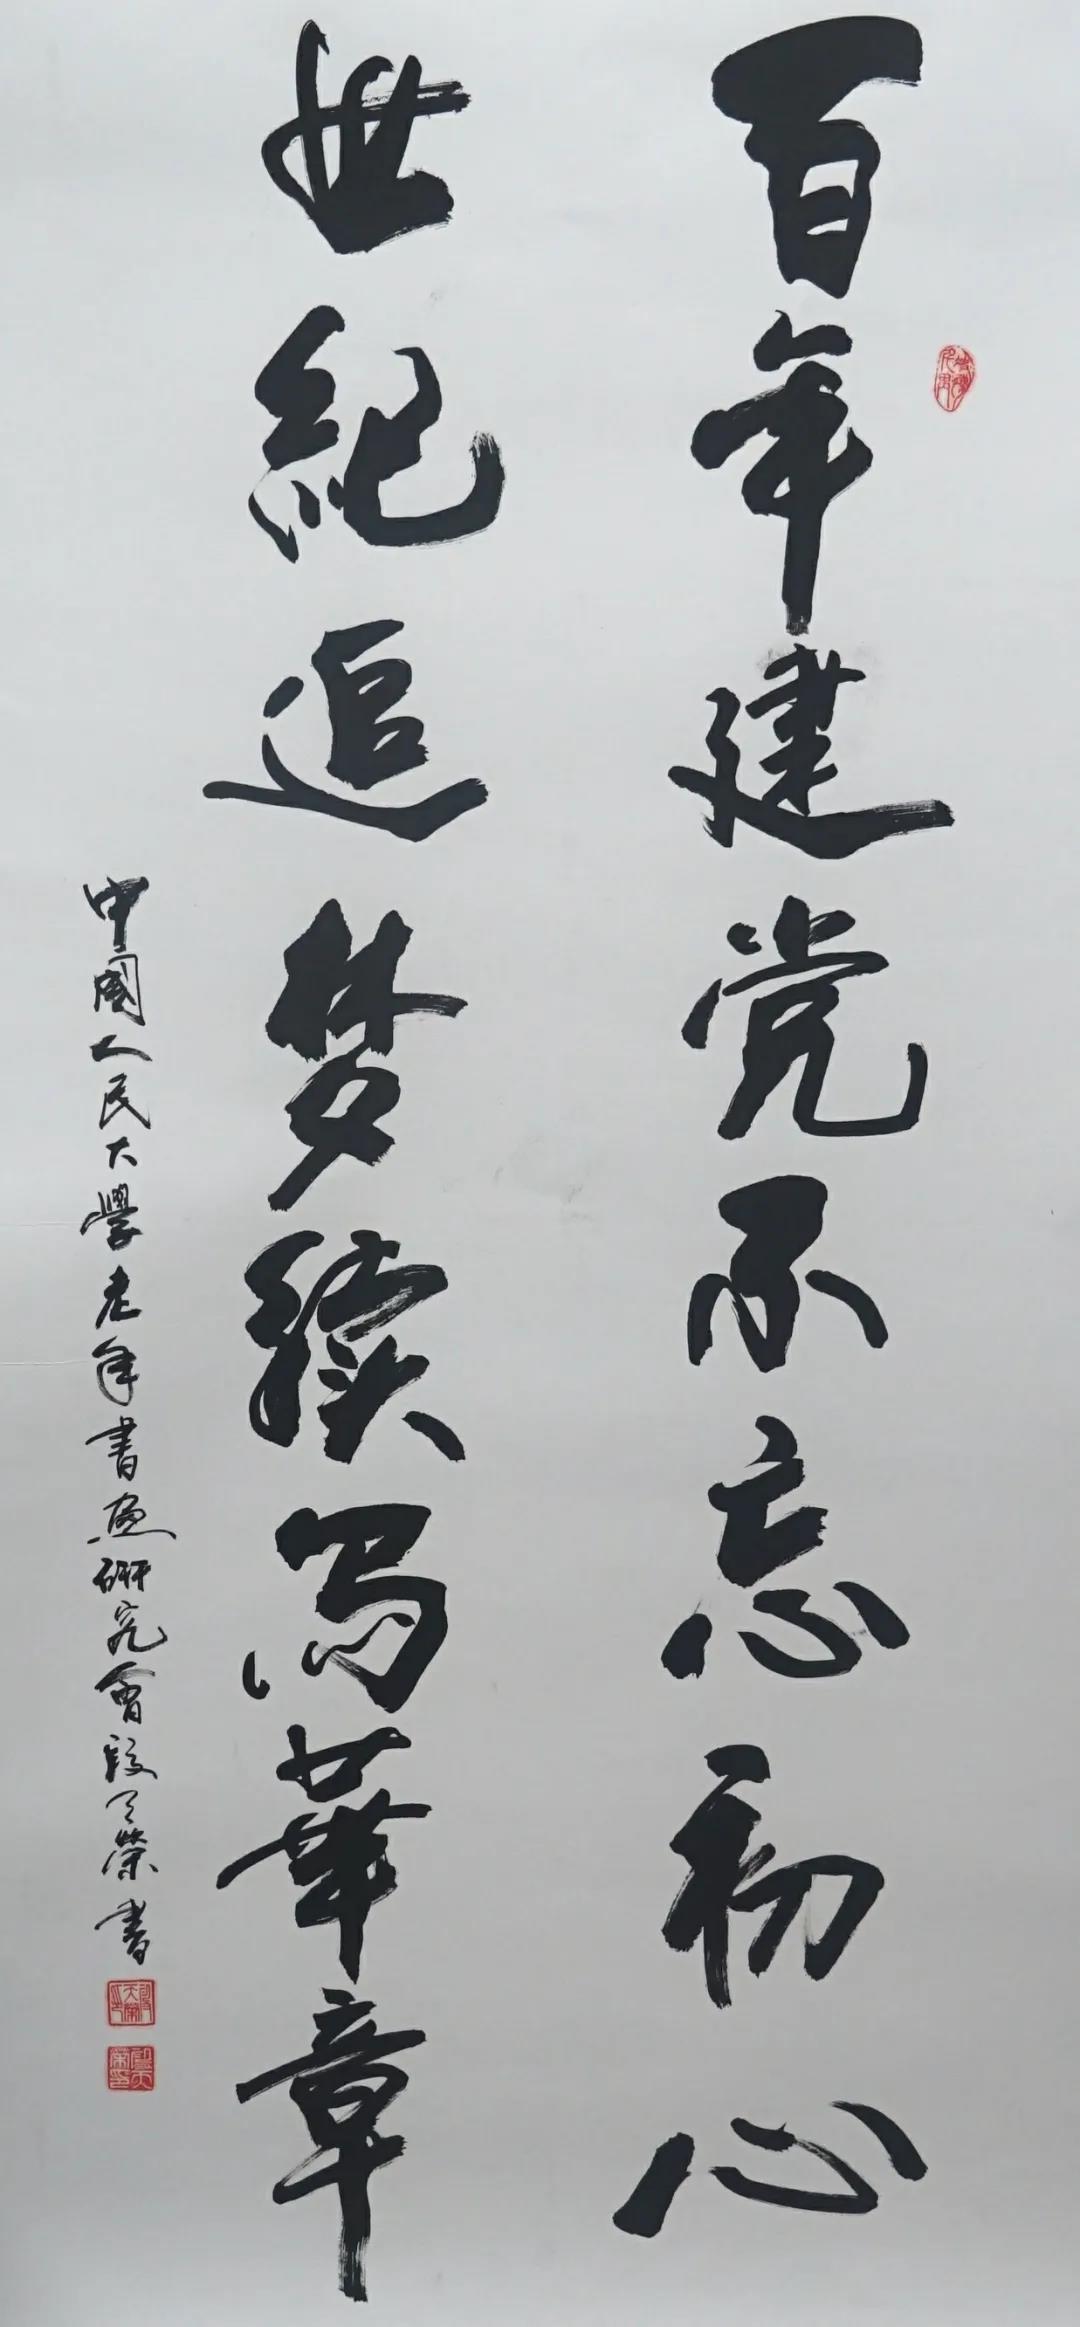 百年建党不忘初心
世紀追梦續写華章
中國人民大學老年書画研究會段天榮書